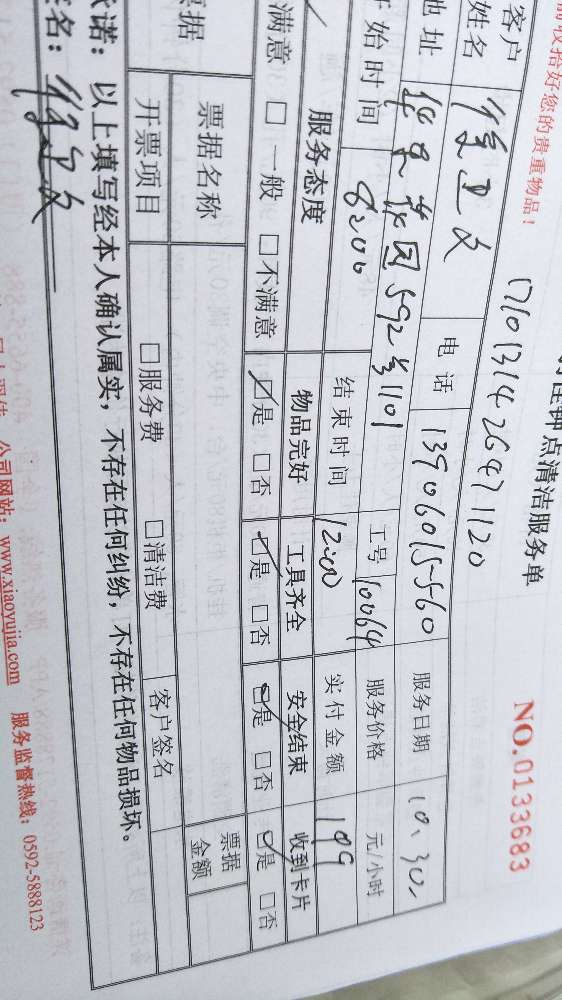 前收拾好您的贵重物品！
时性钟点清洁服务单
NO.0133683
1710131426471120
客户姓名 徐卫文 电话 13906015560 服务日期 10.30.
地址 华昌花园592号1101 工号 10064 服务价格 元/小时
开始时间 8:00 结束时间 12:00 实付金额 199
服务态度 物品完好 工具齐全 安全结束 收到卡片
满意 □一般 □不满意 □是 □否 □是 □否 □是 □否 □是 □否
票据 票据名称 票据金额
开票项目 □服务费 □清洁费 客户签名
承诺：以上填写经本人确认属实，不存在任何纠纷，不存在任何物品损坏。
签名：徐卫文
公司网站：www.xiaoyujia.com 服务监督热线：0592-5888123